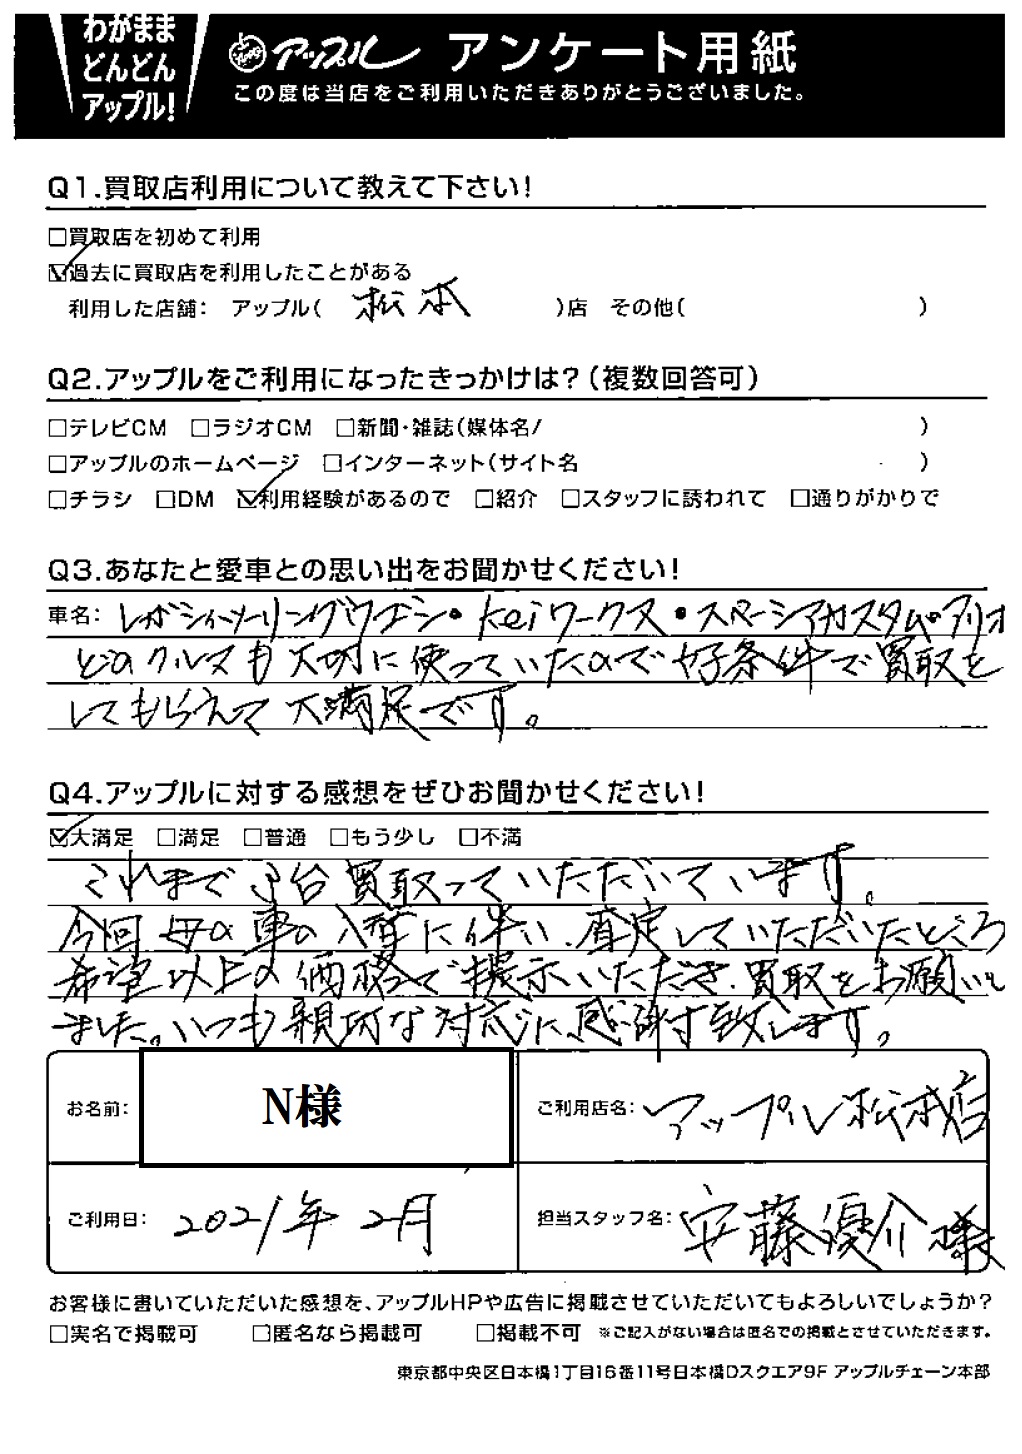 わがまま
どんどん
アップル!
アップル アンケート用紙
この度は当店をご利用いただきありがとうございました。
Q1.買取店利用について教えて下さい!
□買取店を初めて利用
☑過去に買取店を利用したことがある
利用した店舗: アップル( 松本 )店 その他( )
Q2.アップルをご利用になったきっかけは?(複数回答可)
□テレビCM □ラジオCM □新聞・雑誌(媒体名/ )
□アップルのホームページ □インターネット(サイト名 )
□チラシ □DM ☑利用経験があるので □紹介 □スタッフに誘われて □通りがかりで
Q3.あなたと愛車との思い出をお聞かせください!
車名: レガシィツーリングワゴン・Keiワークス・スペーシアカスタム・ソリオ
どのクルマも大切に使っていたので好条件で買取を
してもらえて大満足です。
Q4.アップルに対する感想をぜひお聞かせください!
☑大満足 □満足 □普通 □もう少し □不満
これまで3台買取っていただいています。
今回母の車の入替に伴い、査定していただいたところ
希望以上の価格でご提示いただき、買取をお願いし
ました。いつも親切な対応に感謝致します。
お名前: N様
ご利用店名: アップル松本店
ご利用日: 2021年2月
担当スタッフ名: 安藤優介様
お客様に書いていただいた感想を、アップルHPや広告に掲載させていただいてもよろしいでしょうか?
□実名で掲載可 □匿名なら掲載可 □掲載不可 ※ご記入がない場合は匿名での掲載とさせていただきます。
東京都中央区日本橋1丁目16番11号日本橋Dスクエア9F アップルチェーン本部